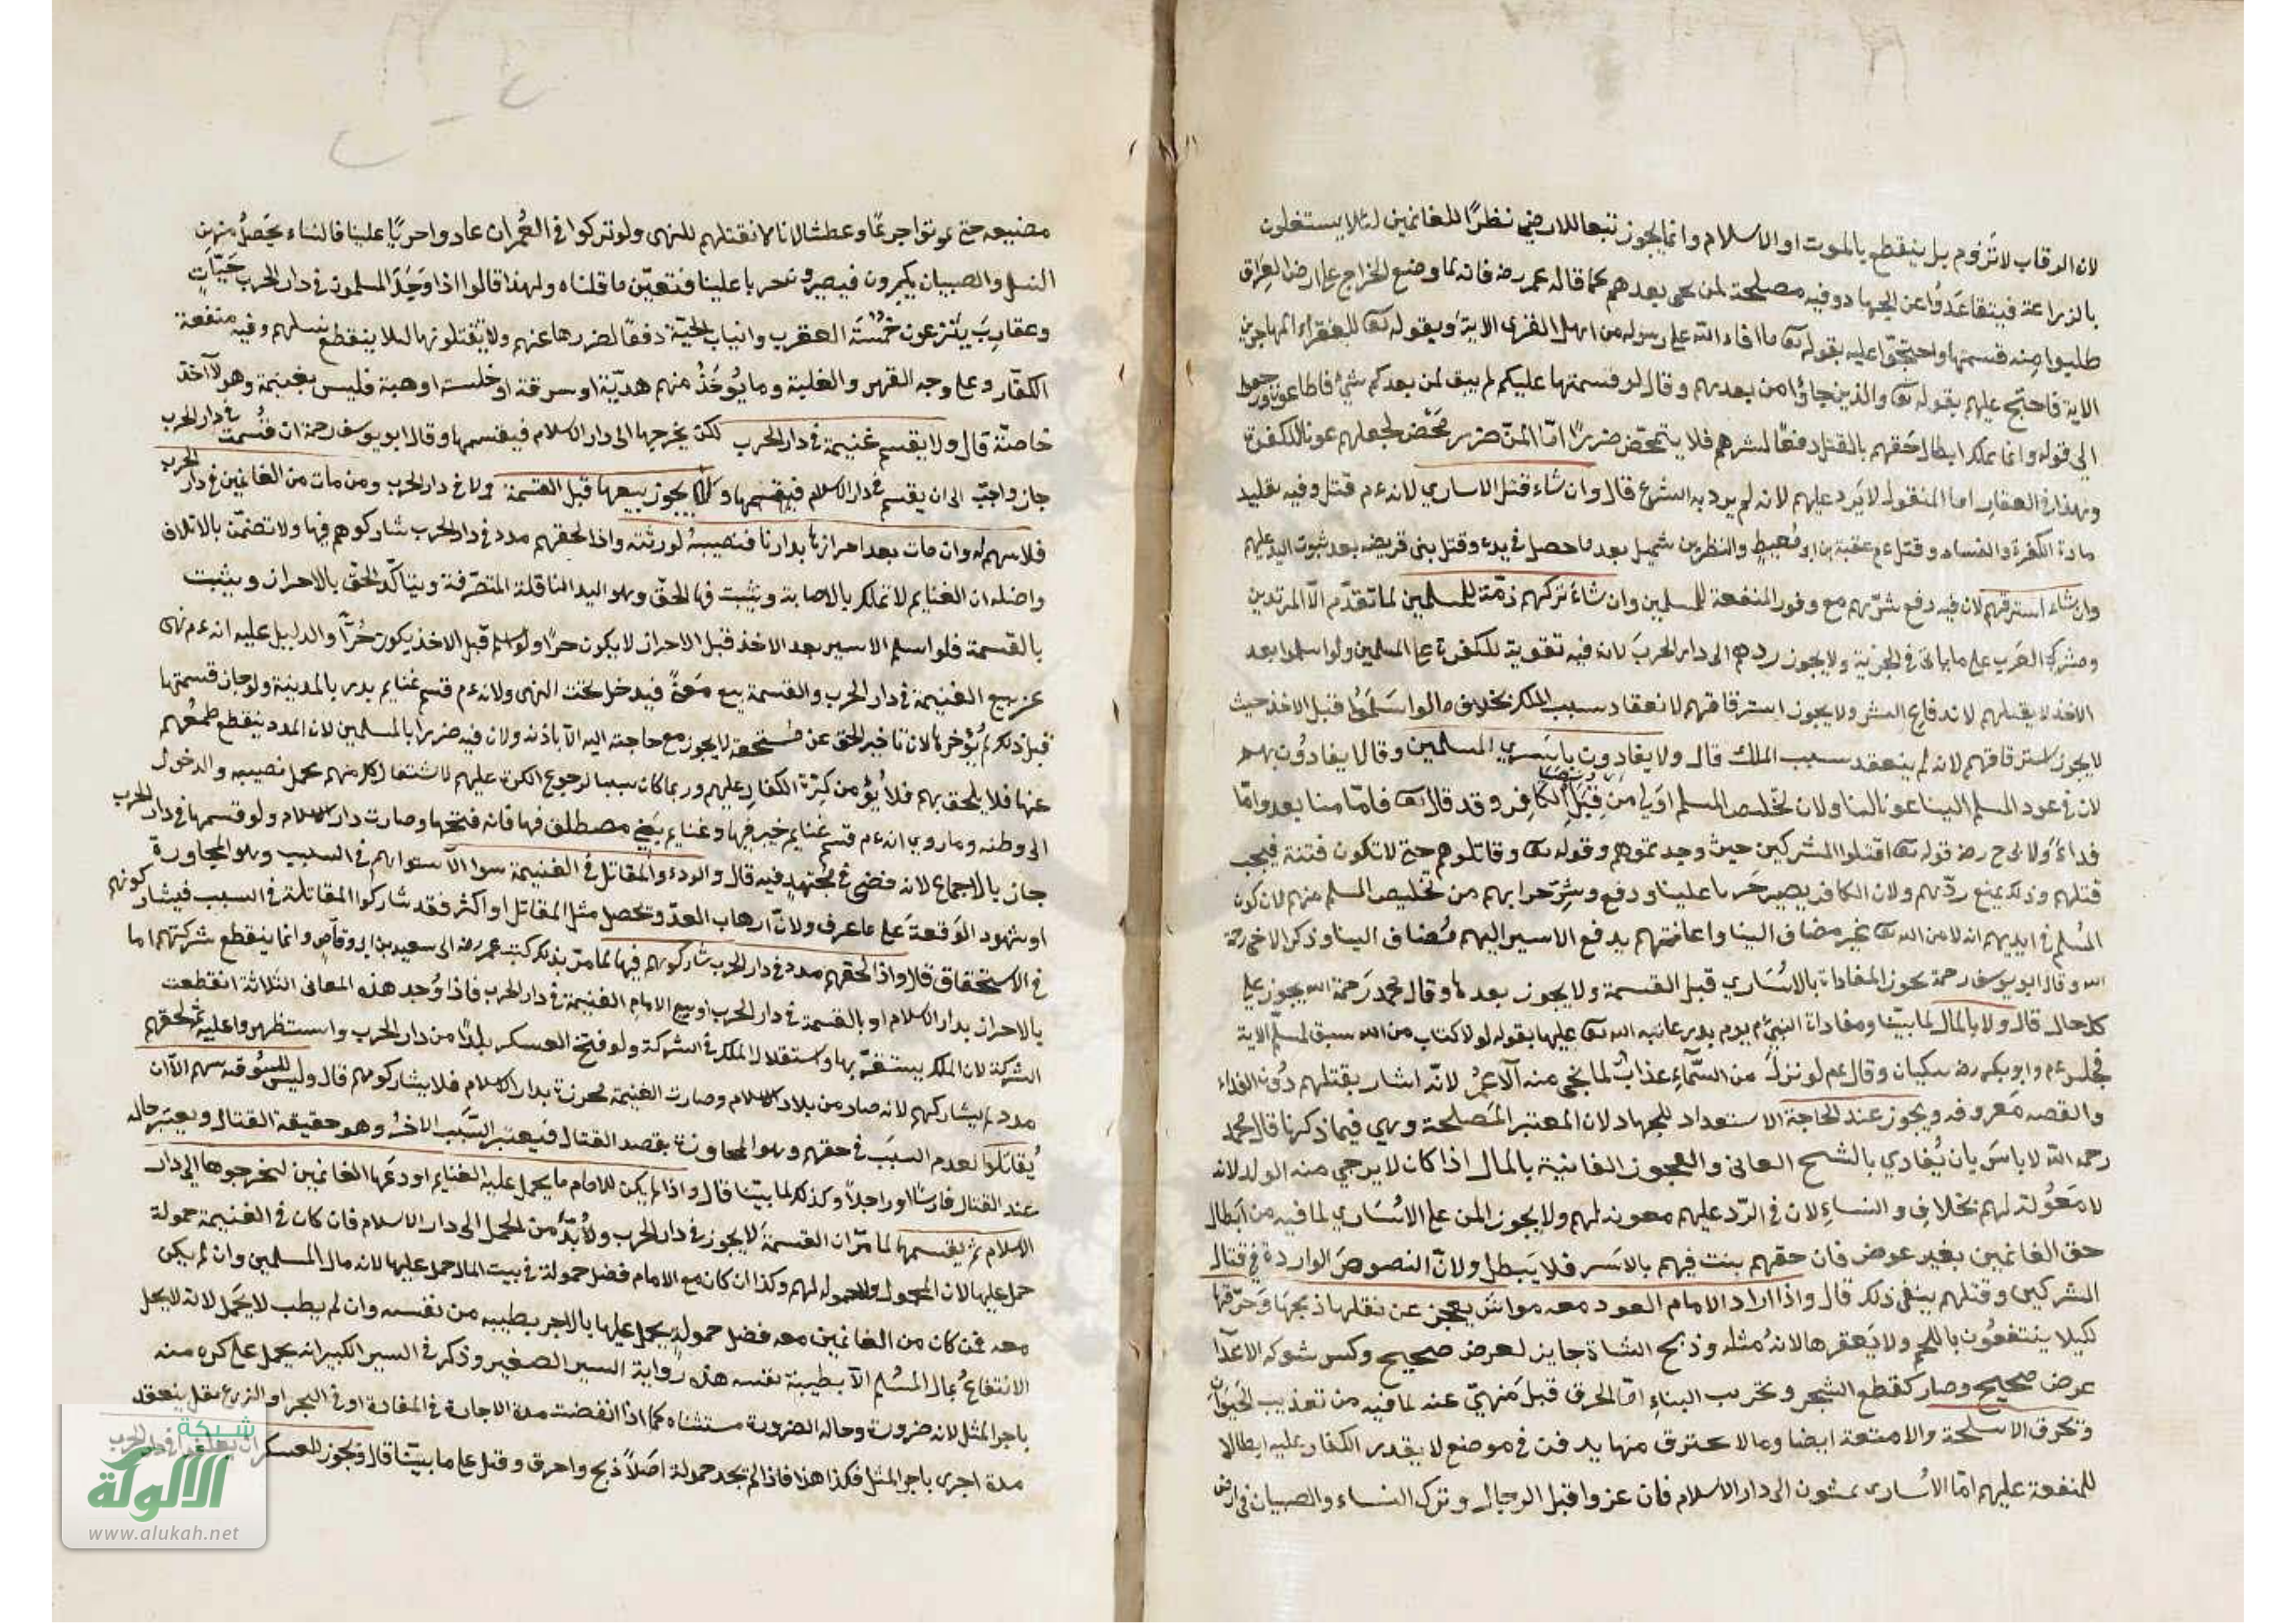 لان الرقاب لا تدوم بل ينقطع بالموت او الاسلام وانما يجوز تبعا للاراضي نظرًا للغانمين لئلا يستغلون
بالزراعة فيتقاعَدُوا عن الجهاد وفيه مصلحة لمن يجى بعدهم كما قاله عمر رضه فانه لما وضع الخراج على ارض العِرَاق
طلبوا منه قسمتها واحتجّوا عليه بقوله تعا ما افاء الله على رسوله من اهل القرى الاية وبقوله تعا للفقراء المهاجرين
الاية فاحتج عليهم بقوله تعا والذين جاؤا من بعدهم وقال لو قسمتها عليكم لم يبق لمن بعدكم شيءٌ فاطاعوه ورجعوا
الى قوله وانما يملك ابطال حَقهم بالقتل دفعًا لشرهم فلا يتمحّض ضررًا امّا المنّ ضرر مَحْض لجعلهم عونا للكفرة
وهذا في العقار اما المنقول لا يَرد عليهم لانه لم يرد به الشرع قال وان شاء قتل الاسارى لانه ءم قتل وفيه تقليد
مادة الكفرة والفساد وقتل ءم عقبة بن ابو مُعيطٍ والنظر بن شميل بعد ما حصل في يده وقتل بنى قريضه بعد ثبوت اليد عليهم
وان شاء استرقهم لان فيه دفع شرّهم مع وفور المنفعة للمسلمين وان شاءَ تركهم ذمّة للمسلمين لما تقدّم الّا المرتدين
ومشركي العَرَب على ما ياتى في الجزية ولا يجوز ردهم الى دار الحربَ لان فيه تقوية للكفرة على المسلمين ولو اسلموا بعد
الاخذ لا يقتلهم لاندفاع الشر ولا يجوز استرقاقهم لانعقاد سبب الملك بخلاف ما لو اسَلَمُوا قبل الاخذ حيث
لا يجوز استرقاقهم لانه لم ينعقد سبب الملك قال ولا يفادون باَسَري المسلمين وقالا يفادُون بهم
لان في عود المسلم الينا عونا لنا ولان تخليص المسلم اولى من قِبَلِ الكافِر وقد قال تعا فامّا منا بعد وامّا
فداءً ولابى ح رضه قوله تعا اقتلوا المشركين حيث وجدتموهم وقوله تعا وقاتلوهم حتى لا تكون فتنة فيجب
قتلهم وذلك يمنع ردّهم ولان الكافر يصير حَربا علينا ودفع شرّ حرابهم من تخليص المسلم منهم لان كون
المُسلم في ايديهم اذلا من الله تعا غير مضاف الينا واعانتهم بدفع الاسير اليهم مُضاف الينا وذكر الاخى رحمة
الله وقال ابو يوسف رحمة يجوز المفاداة بالاُسَاري قبل القسمة ولا يجوز بعدها وقال محمد رَحمة الله يجوز على
كل حال قال ولا بالمال لما بيّنا ومفاداة النبيّ م يوم بدر عاتبه الله تعا عليها بقوله لولا كتاب من الله سبق لمسّ الاية
فجلس ءم وابو بكر رضه يبكيان وقال ءم لو نزلَ من السّمآءِ عذابٌ لما نجى منه الّا عمرُ لانّه اشار بقتلهم دُون الفداء
والقصه مَعروفه ويجوز عند الحاجة الاستعداد للجهاد لان المعتبر المَصلحة وهي فيما ذكرنا قال محمد
رحمه الله لا باسَ بان يُفادي بالشيخ الفانى والعجوز الفانية بالمال اذا كان لا يرجي منه الولد لانه
لا مَعوُنة لهم بخلافِ والنساءِ لان في الرّد عليهم معونه لهم ولا يجوز المن على الاُسَاري لما فيه من اَبطال
حق الغانمين بغير عوض فان حقهم بنت فيهم بالاَسر فلا يَبطل ولانّ النصوصَ الواردة في قتال
المشركين وقتلهم ينفي ذلك قال واذا اراد الامام العود معه مواش يعجز عن نقلها ذبحَها وَحرّقها
لكيلا ينتفعُون باللحم ولا يَعقرها لانهُ مُثله وذبح الشاة جايز لعرض صحيح وكسر شوكه الاعدآء
عرض صحيح وصار كقطع الشجر وتخريب البناءِ امّا الحرق قبلَ مَنهيّ عنه لما فيه من تعذيب الحَيَوان
وتحرق الاسلحة والامتعة ايضا وما لا يحترق منها يدفن في موضع لا يقدر الكفار عليه ابطالا
للمنفعة عليهم امّا الاُسارى يمشون الى دار الاسلام فان عزوا قبل الرجال وترك النساء والصبيان في ارض
مضيعه حتى يموتوا جوعًا وعطشًا لانا لا نقتلهم للنهى ولو تركوا في العُمران عادوا حربًا علينا فالنساء يحَصلُ منهن
النسل والصبيان يكبرون فيصيرون حربا علينا فتعيّن ما قلناه ولهذا قالوا اذا وَجَدَ المسلمون في دار الحرب حَيّاتٍ
وعقاربَ يَنْزعون حُمُّةَ العقرب وانياب الحيّة دفعًا لضررها عنهم ولا يقتلونها لئلا ينقطع نسلهم وفيه منفعة
الكفّار وعلى وجه القهر والغلبة وما يُؤخَذُ منهم هديّة او سرقة او خلسة او هبة فليس بغنيمة وهو لآخذه
خاصّة قال ولا يقسم غنيمة في دار الحرب لكن يخرجها الى دار الاسلام فيقسمها وقال ابو يوسف رحمة ان قسُمت في دار الحرب
جاز واحبّ الى ان يقسم في دار الاسلام فيقسمها ولا يجوز بيعها قبل القسمة ولا في دار الحرب ومن مات من الغانمين في دار الحرب
فلا سهم له وان مات بعد احرازها بدارنا فنصيبهُ لورثته واذا لحقهم مدد في دار الحرب شاركوهم فيها ولا تضمّن بالاتلاف
واصله ان الغنايم لا تملك بالاصابة ويثبت فها الحقّ وهو اليد الناقلة المتصرّفة ويتاكّد الحقّ بالاحراز ويثبت
بالقسمة فلو اسلم الاسير بعد الاخذ قبل الاحراز لا يكون حرًا ولو اسلم قبل الاخذ يكون حُرّاً والدليل عليه انه ءم نهى
عن بيع الغنيمة في دار الحرب والقسمة بيع مَعنًى فيدخل تحت النهى ولانه ءم قسم غنايم بدر بالمدينة ولو جاز قسمتها
قبل ذلك لم يُؤخرها لان تاخير الحق عن مُستحقه لا يجوز مع حاجته اليه الّا باذنه ولان فيه ضررا بالمسلمين لان المدد ينقطع طمعُهم
عنها فلا يلحق بهم فلا يُؤمن كرّة الكفار عليهم وربما كان سببا لرجوع الكرة عليهم لاشتغال كل منهم بحمل نصيبه والدخول
الى وطنه وما روى انه ءم قسم غنايم خيبر فيها وغنايم بَنى مصطلق فها فانه فتحها وصارت دار الاسلام ولو قسمها في دار الحرب
جاز بالاجماع لانه قضى في مُجتهدٍ فيه قال والردء والمقاتل في الغنيمة سوا الاستوايهم في السبب وهو المجاورة
او شهود الوَقعةَ على ما عرف ولانّ ارهاب العدّو يحصل مثل المقاتل او اكثر فقد شاركوا المقاتلة في السبب فيشاركونهم
في الاستحقاق قال واذا لحقهم مدد في دار الحرب شاركوهم فيها لما مرّ بذلك كتب عمر رضه الى سعيد بن ابو وقاص وانما ينقطع شركتهم اما
بالاحراز بدار الاسلام او بالقسمة في دار الحرب او بيع الامام الغنيمة في دار الحرب فاذا وُجد هذه المعانى الثلاثة انقطعت
الشركة لان الملك يستقرّ بها واستقلال الملك في الشركة ولو فتح العسكر بلدًا من دار الحرب واستظهروا عليه ثم لحقهم
مدد لم يشاركهم لانه صار من بلاد الاسلام وصارت الغنيمة محرزة بدار الاسلام فلا يشاركونهم قال وليس للسُوقه سهم الّا ان
يُقاتلوا لعدم السبَب في حقهم وهو المجاوزة بقصد القتال فيعتبر السَّبب الاخرُ وهو حقيقة القتال ويعتبر حاله
عند القتال فارسًا او راجلاً وكذلك لما بيّنا قال واذا لم يكن للامام ما يحمل عليه الغنايم اودعَها الغانمين ليخرجوها الى دار
الاسلام ثم يقسمها لما مرّ ان القسمةَ لا يجوز في دار الحرب ولا بُدَّ من الحمل الى دار الاسلام فان كان في الغنيمة حمولة
حمل عليها لان المحمول والحموله لهم وكذا ان كان مع الامام فضل حمولة في بيت المال حمل عليها لانه مال المسلمين وان لم يكن
معه فمن كان من الغانمين معه فضل حمولةٍ يحمل عليها بالاجر بطيبه من نفسه وان لم يطب لا يحَمل لانه لا يحل
الانتفاعُ بمال المسُلم الّا بطيبة نفسه هذه رواية السير الصغير وذكر في السير الكبير انه يحمل على كره منه
باجر المثل لانه ضرورة وحاله الضرورة مستثناه كما اذا انقضت مدة الاجارة في المفازة او في البحر او الزرع بقل ينعقد
مدة اخرى باجر المثل فكذا هذا فاذا لم تجد حمولة اصَلاً ذبح واحرق وقتل على ما بيّنا قال ويجوز للعسكر ان يعلف في دار الحرب
شبكة
الألوكة
www.alukah.net